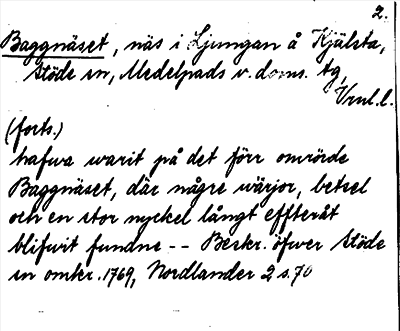 2.
Baggnäset, näs i Ljungan å Kjälsta,
Stöde sn, Medelpads v. doms. tg,
Vnl.l.
(forts.)
hafwa warit på det förr omrörde
Baggnäset, där någre wärjor, betsel
och en stor nyckel långt effteråt
blifwit fundne -- Beskr. öfwer Stöde
sn omkr. 1769, Nordlander 2 s. 70